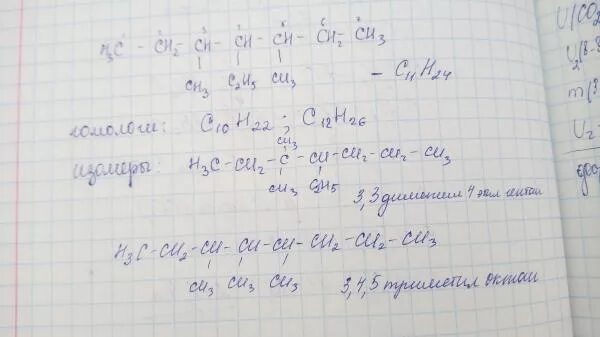 H₃C - CH₂ - CH - CH - CH - CH₂ - CH₃
CH₃ C₂H₅ CH₃
- C₁₁H₂₄
гомологи: C₁₀H₂₂ ; C₁₂H₂₆
CH₃
изомеры: H₃C - CH₂ - C - CH - CH₂ - CH₂ - CH₃
CH₃ C₂H₅
3,3 диметил 4 этил гептан
H₃C - CH₂ - CH - CH - CH - CH₂ - CH₂ - CH₃
CH₃ CH₃ CH₃
3,4,5 триметил октан